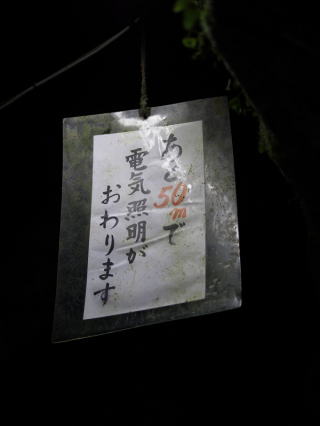 あと50mで
電気照明が
おわります